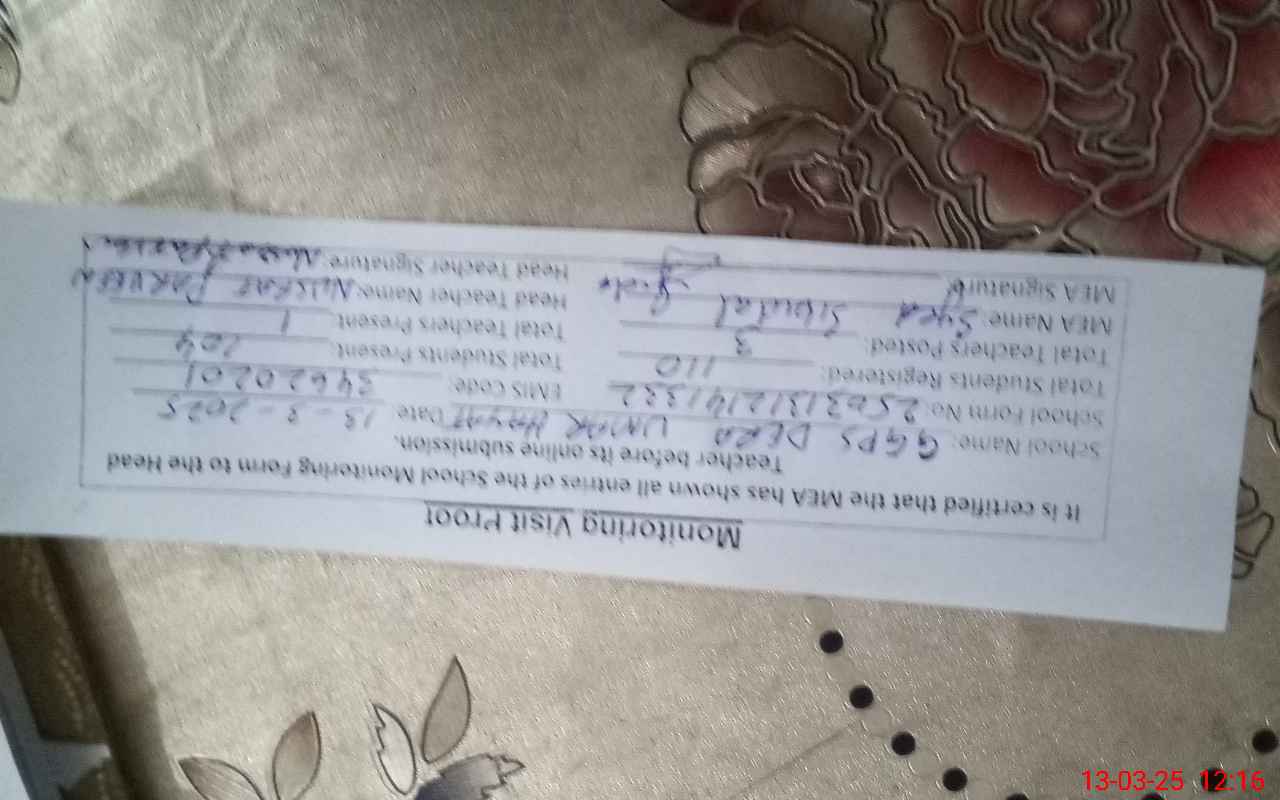 Monitoring Visit Proof
It is certified that the MEA has shown all entries of the School Monitoring Form to the Head
Teacher before its online submission.
School Name: GGPS DERA UMAR HAYAT Date: 13-3-2025
School Form No: 25031312141332 EMIS Code: 34620201
Total Students Registered: 110 Total Students Present: 104
Total Teachers Posted: 3 Total Teachers Present: 1
MEA Name: Syed Head Teacher Name: NUSRAT PARVEEN
MEA Signature: Head Teacher Signature:
13-03-25 12:16